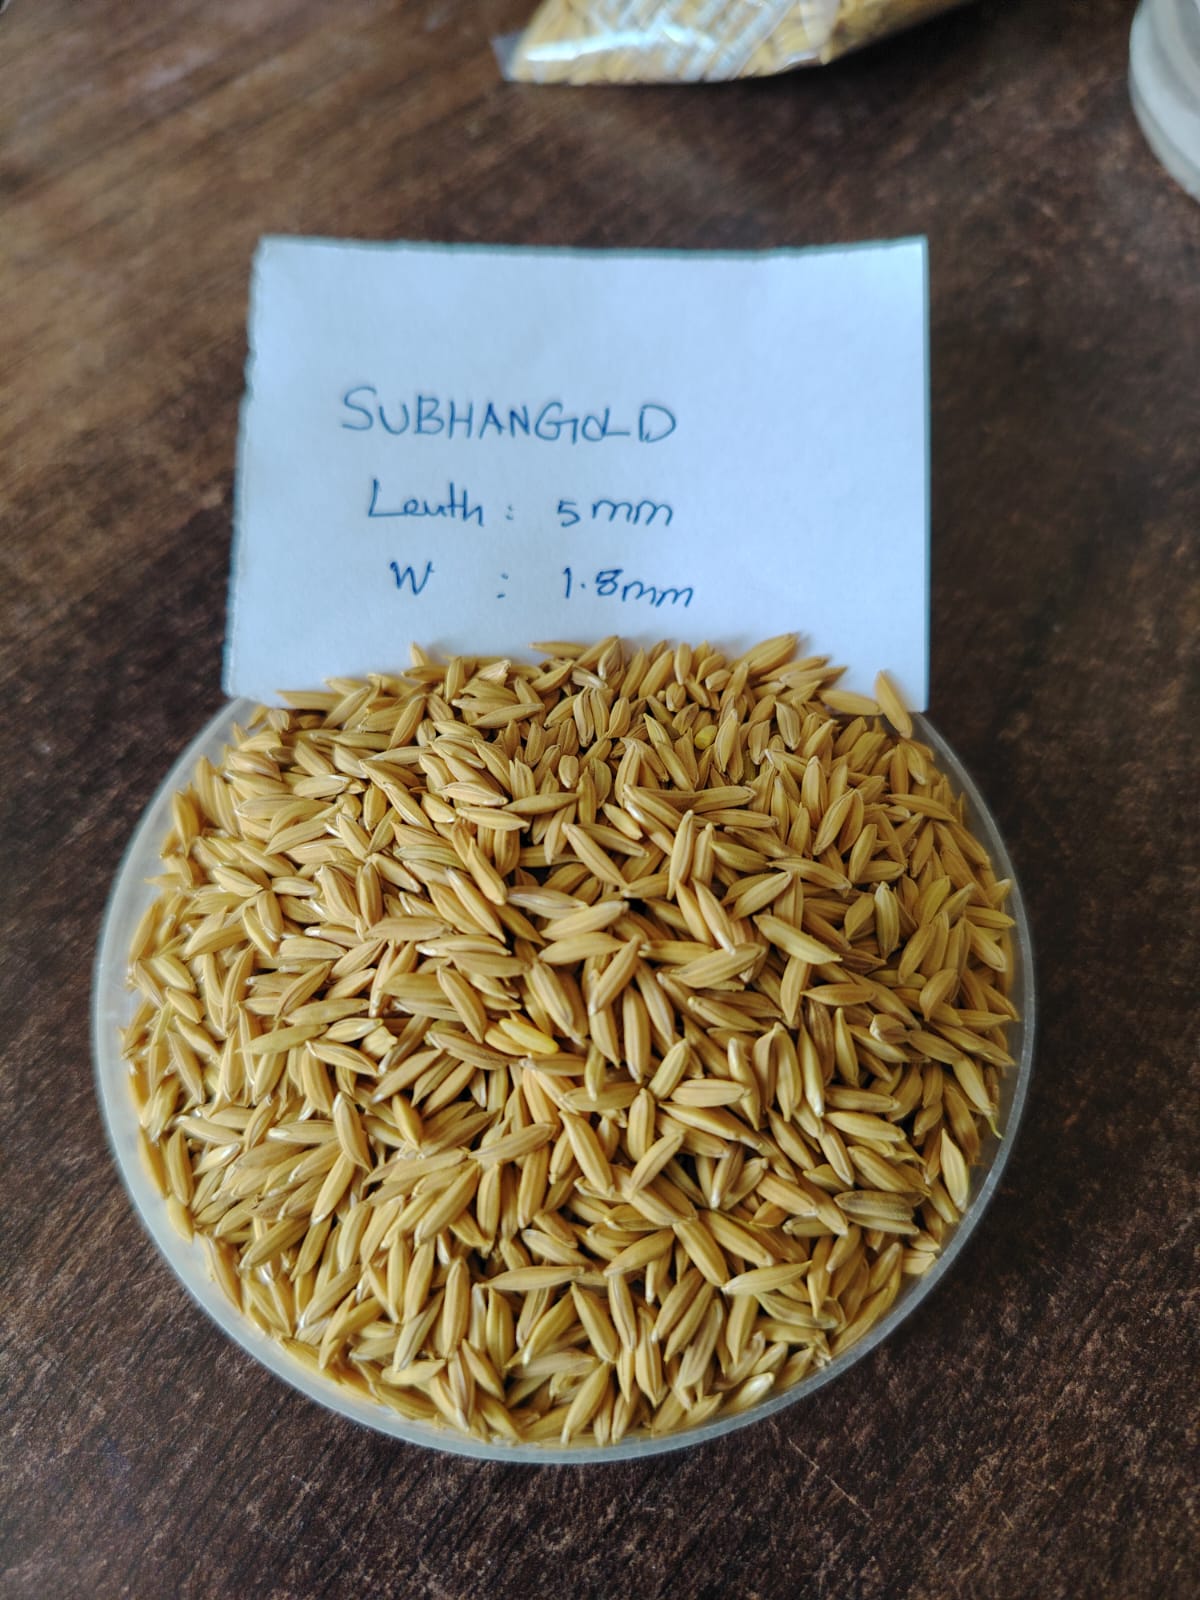 SUBHANGOLD
Leuth : 5mm
W : 1.8mm